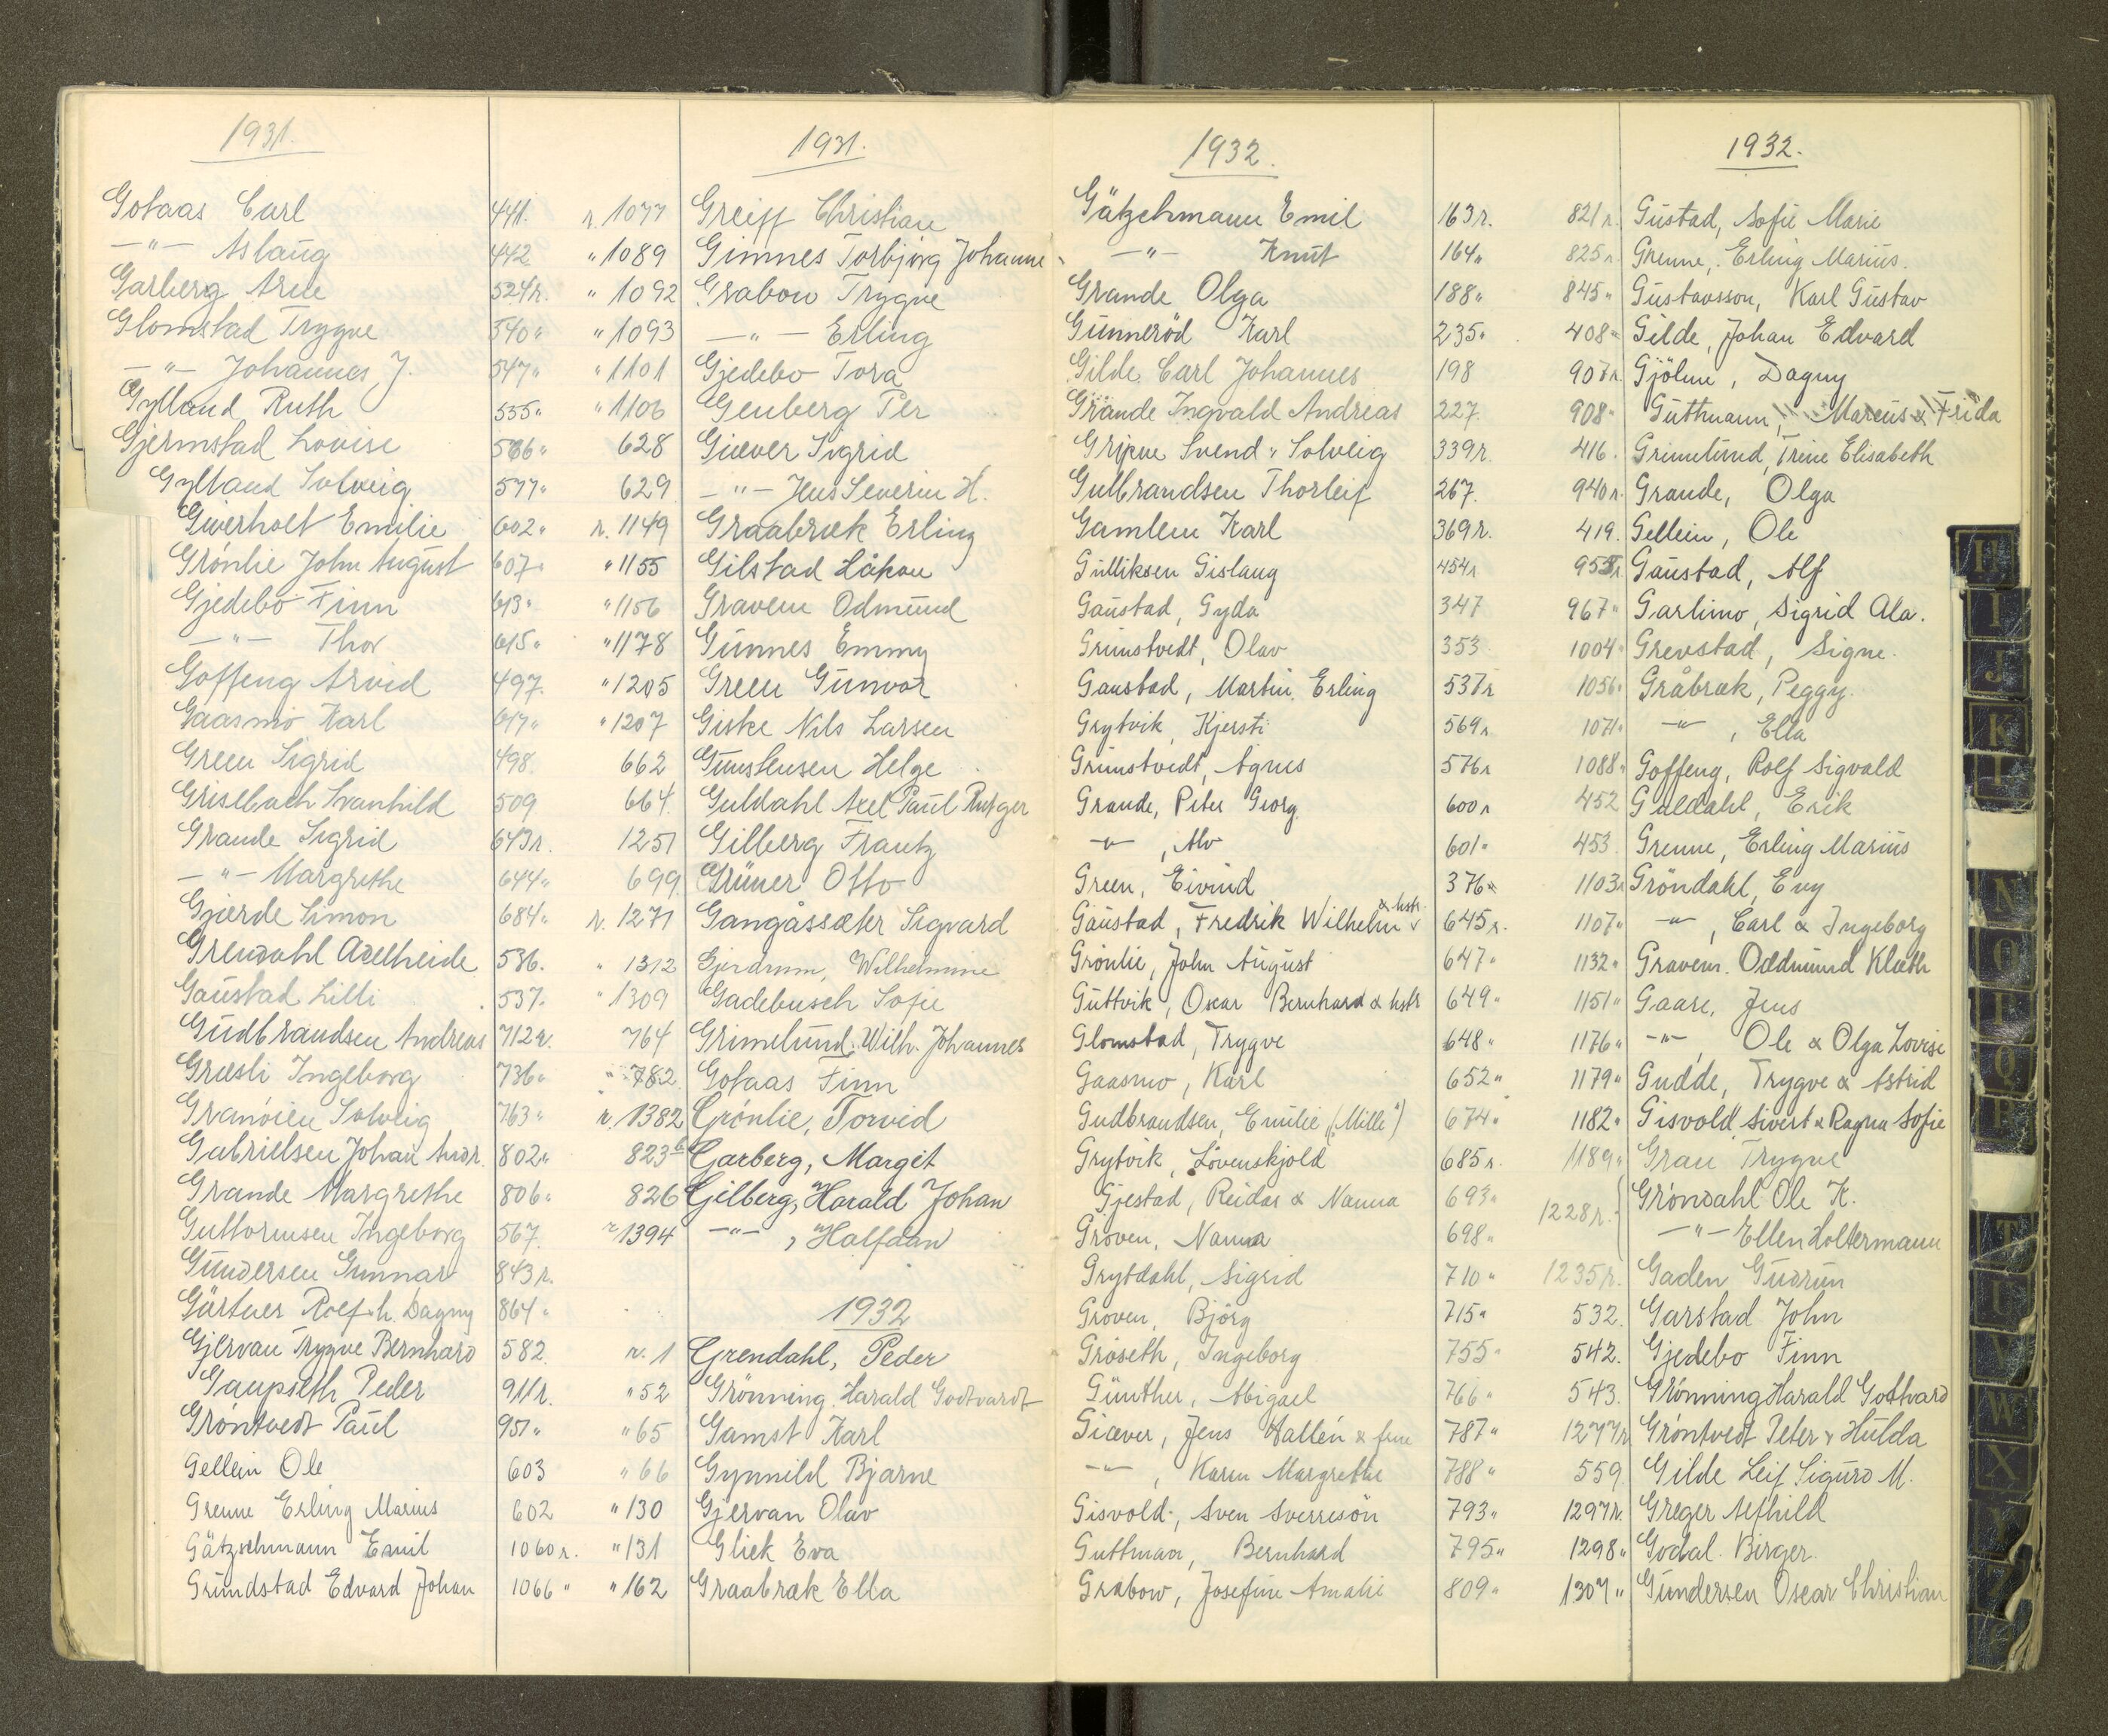 1931.
Gotaas Carl 441.
—"— Aslaug 442
Garberg Arne 524r.
Glomstad Trygve 540"
—"— Johannes J. 547"
Gylland Ruth 555"
Gjermstad Lovise 566"
Gylland Solveig 577"
Gwerholt Emilie 602"
Grönlie John August 607"
Gjedebo Finn 613"
—"— Thor 615"
Goffeng Arvid 497.
Gaasmo Karl 617"
Green Sigrid 498.
Griselbach Svanhild 509
Grande Sigrid 643r.
—"— Margrethe 644"
Gjerde Simon 684"
Grendahl Adelheide 536.
Gaustad Lilli 537.
Gudbrandsen Andreas 712r.
Græsli Ingeborg 736"
Granöien Solveig 763"
Gabrielsen Johan Andr. 802"
Grande Margrethe 806"
Guttormsen Ingeborg 567.
Gundersen Gunnar 843r.
Gärtner Rolf h. Dagny 864"
Gjervan Trygve Bernhard 582
Gaupseth Peder 911r.
Gröntvedt Paul 951"
Gellein Ole 603
Grenne Erling Marius 602
Gätzschmann Emil 1060r.
Grundstad Edvard Johan 1066"
1931.
r. 1077 Greiff Christian
" 1089 Gimnes Torbjörg Johanne
" 1092 Grabow Trygve
" 1093 —"— Erling
" 1101 Gjedebo Tora
" 1106 Genberg Per
628 Giæver Sigrid
629 —"— Jens Severin H.
r. 1149 Graabræk Erling
" 1155 Gilstad Håkon
" 1156 Gravem Odmund
" 1178 Gunnes Emmy
" 1205 Green Gunvor
" 1207 Giske Nils Larsen
662 Gunstensen Helge
664. Guldahl Axel Paul Rutger
1251 Gilberg Frantz
699. Grüner Otto
r. 1271 Gangåssæter Sigvard
" 1312 Gjerdrum, Wilhelmine
" 1309 Gadebusch Sofie
764 Grimelund, Wilh. Johannes
" 782 Gotaas Finn
r. 1382 Grönlie, Torvid
823b Garberg, Margit
826 Gilberg, Harald Johan
r 1394 —"— , Halfdan
1932
r. 1 Grendahl, Peder
" 52 Grönning. Harald Godtvardt
" 65 Gamst Karl
" 66 Gynnild Bjarne
" 130 Gjervan Olav
" 131 Gliek Eva
" 162 Graabræk Ella
1932.
Gätzchmann Emil 163r.
—"— Knut 164"
Grande Olga 188"
Gunneröd Karl 235"
Gilde Carl Johannes 198
Grande Ingvald Andreas 227.
Gripne Svend " Solveig 339r.
Gulbrandsen Thorleif 267.
Gamlem Karl 369r.
Gulliksen Gislaug 454r
Gaustad, Gyda 347
Grimstvedt, Olav 353
Gaustad, Martin Erling 537r
Grytvik, Kjersti 569r
Grimstvedt, Agnes 576r
Grande, Peter Georg 600r
—"— , Alv 601"
Green, Eivind 376
Gaustad, Fredrik Wilhelm & hstr. 645r.
Grönlie, John August 647"
Guttvik, Oscar Bernhard & hstr 649"
Glomstad, Trygve 648"
Gaasmo, Karl 652"
Gudbrandsen, Emilie ("Milli") 674"
Grytvik, Lövenskjold 685r.
Gjestad, Reidar & Nanna 693"
Groven, Nanna 698"
Grytdahl, Sigrid 710"
Groven, Björg 715"
Gröseth, Ingeborg 755"
Günther, Abigael 766"
Giæver, Jens Hallén & frue 787"
—"— , Karen Margrethe 788"
Gisvold, Sven Sverresön 793"
Guttman, Bernhard 795"
Grabow, Josefine Amalie 809"
1932.
821r. Gustad, Sofie Marie
825r. Grenne, Erling Marius.
845" Gustavsson, Karl Gustav
408" Gilde, Johan Edvard
907r. Gjölme, Dagny
908" Guttmann, Marcus & Frida
416. Grimelund, Trine Elisabeth
940r. Grande, Olga
419. Gellein, Ole
955r. Gaustad, Alf
967" Garlimo, Sigrid Ala.
1004" Grevstad, Signe.
1056" Gråbræk, Peggy.
1071" —"— , Ella
1088" Goffeng, Rolf Sigvald
452 Guldahl, Erik
453 Grenne, Erling Marius
1103r Gröndahl, Evy
1107" —"— , Carl & Ingeborg
1132" Gravem. Oddmund Klæth
1151" Gaare, Jens
1176" —"— , Ole & Olga Lovise
1179" Gudde, Trygve & Astrid
1182" Gisvold Sivert & Ragna Sofie
1189" Grau Trygve
1228r. Gröndahl Ole K.
—"— Ellen Holtermann
1235r. Gaden Gudrun
532. Garstad John
542. Gjedebo Finn
543. Grönning Harald Gottvard
1277r Gröntvedt Peter & Hulda
559. Gilde Leif Sigurd M.
1297r. Greger Alfhild
1298" Godal. Birger.
1307" Gundersen Oscar Christian
H
I
J
K
L
N
O
P
Q
R
T
U
V
W
X
Y
Z